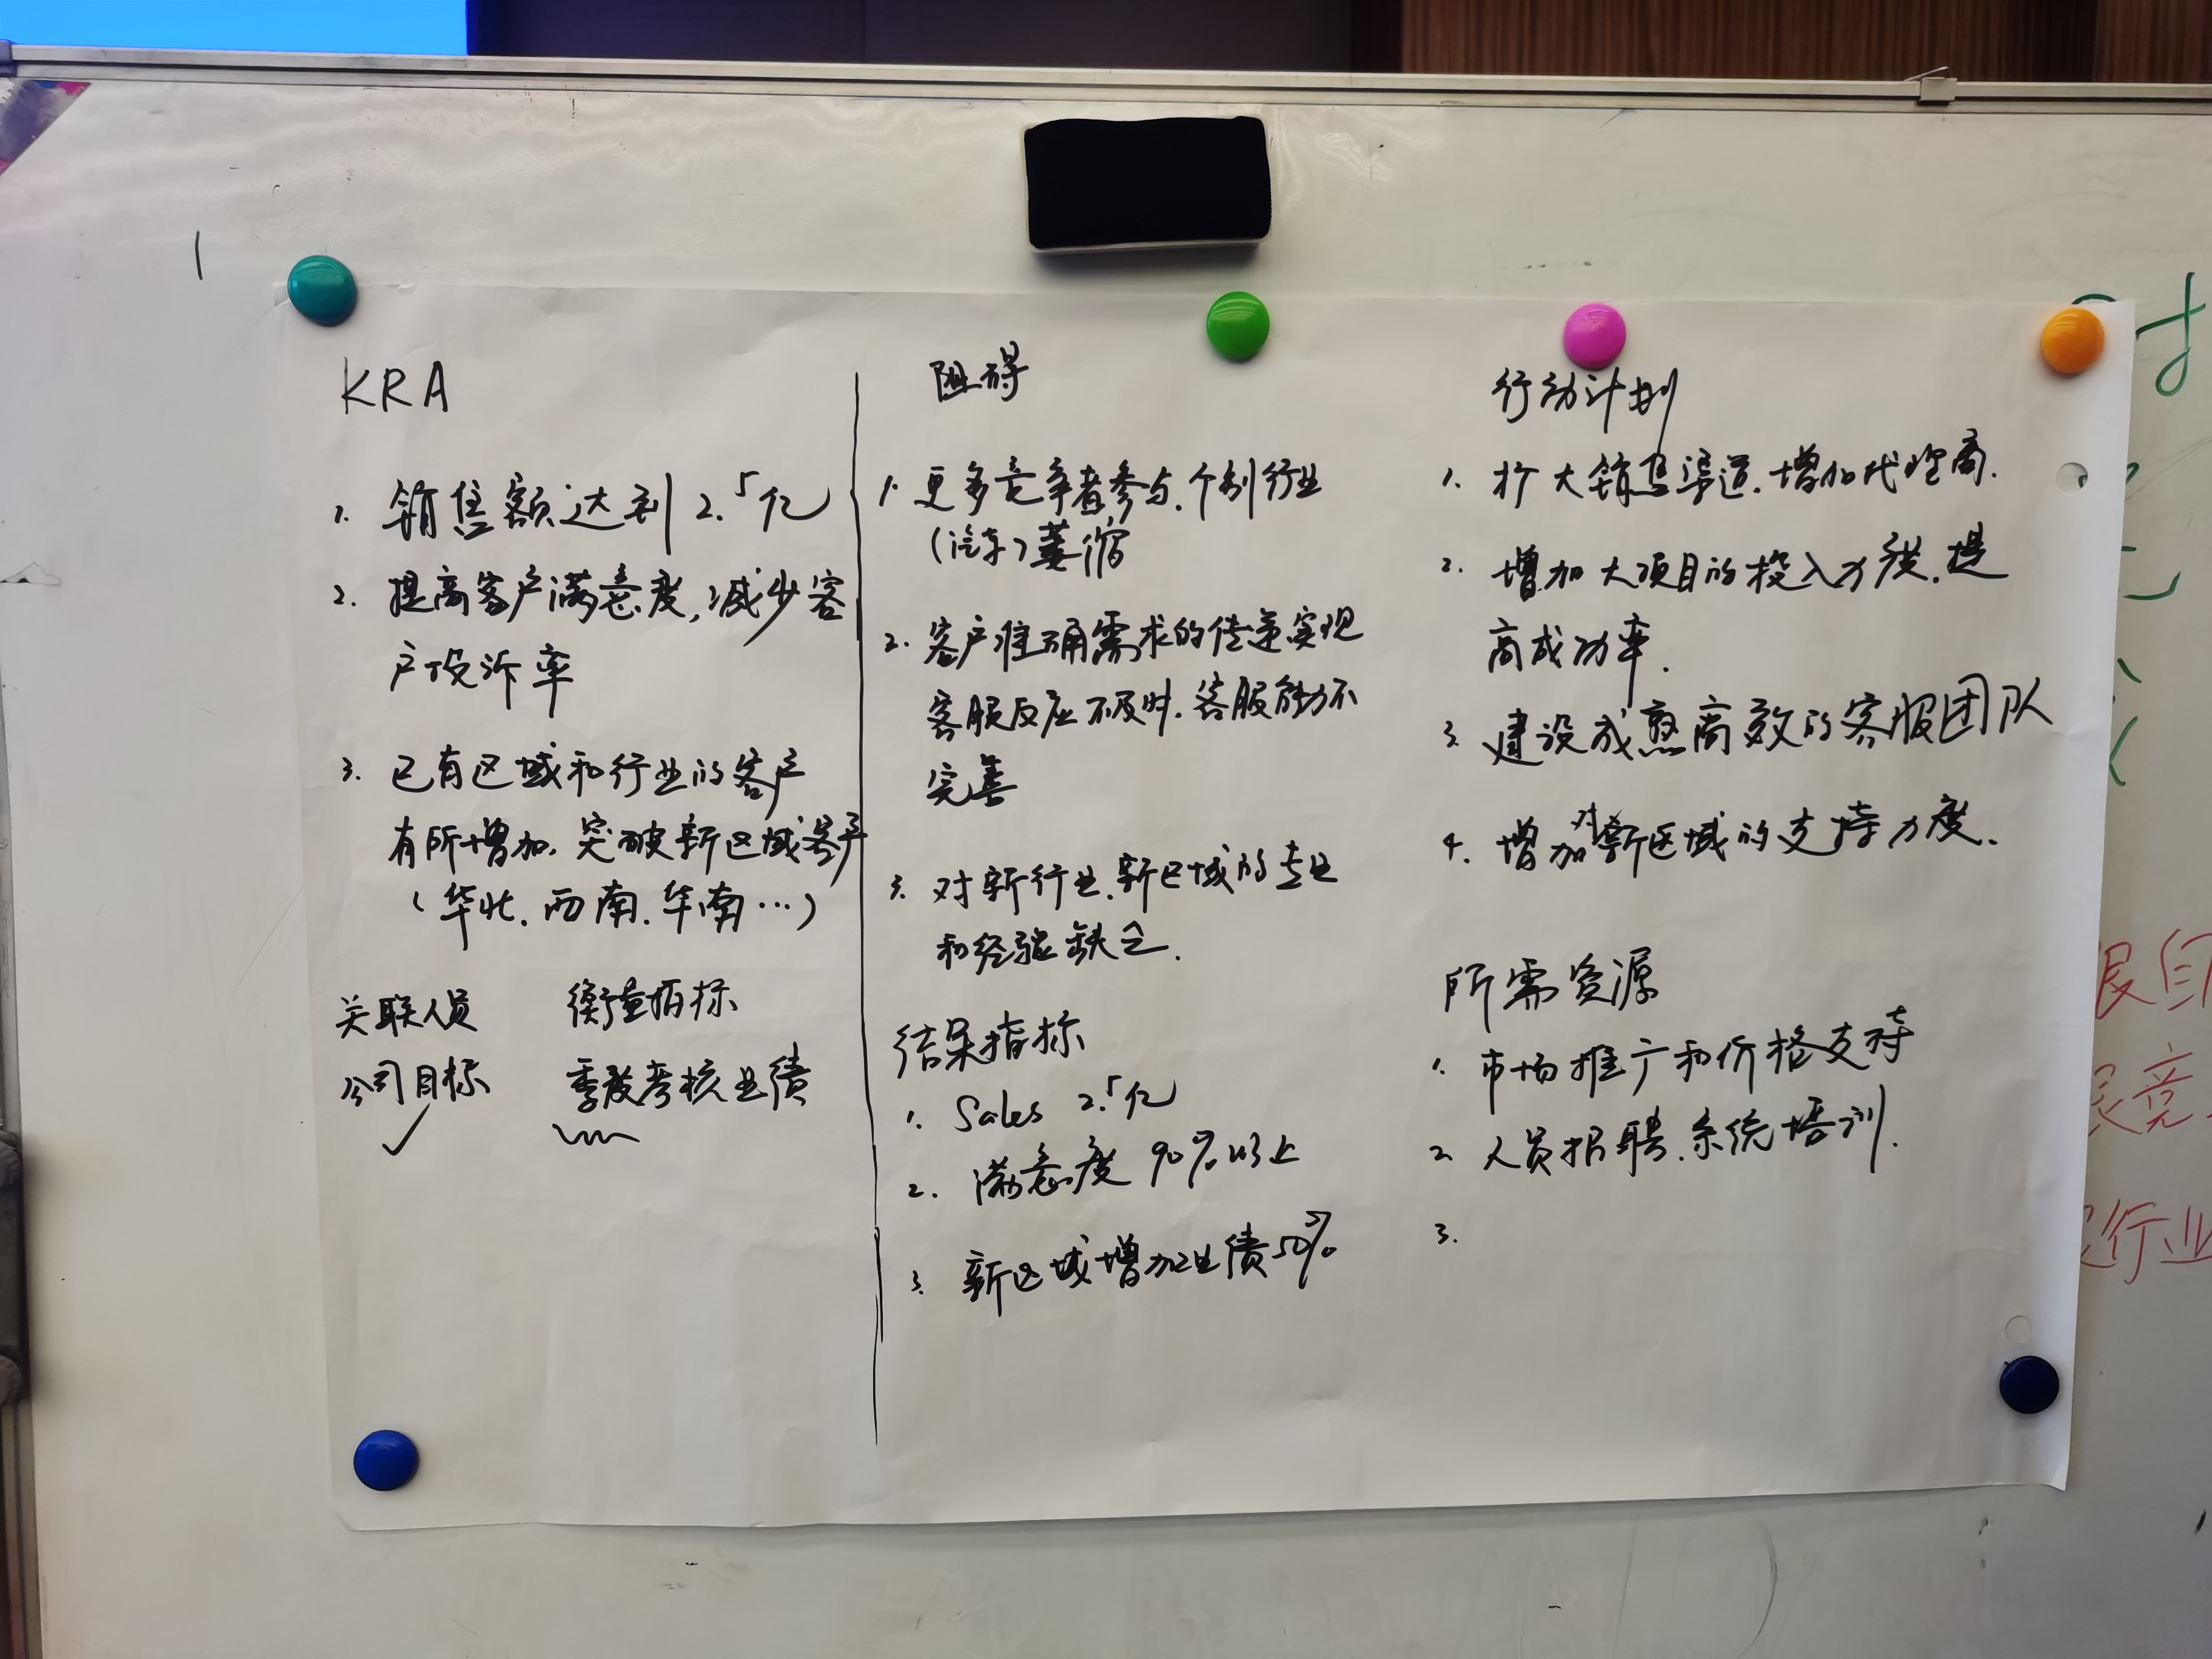 KRA
1. 销售额达到2.5亿
2. 提高客户满意度,减少客
户投诉率
3. 已有区域和行业的客户
有所增加,突破新区域客户
(华北.西南.华南…)
关联人员
公司目标
衡量指标
季度考核业绩
阻碍
1. 更多竞争者参与.个别行业
(汽车)萎缩
2. 客户准确需求的传递实现
客服反应不及时.客服能力不
完善
3. 对新行业.新区域的专业
和经验缺乏.
结果指标
1. Sales 2.5亿
2. 满意度90%以上
3. 新区域增加业绩50%
行动计划
1. 扩大销售渠道.增加代理商.
2. 增加大项目的投入力度.提
高成功率.
3. 建设成熟高效的客服团队
4. 增加对新区域的支持力度.
所需资源
1. 市场推广和价格支持
2. 人员招聘.系统培训.
3.
行业